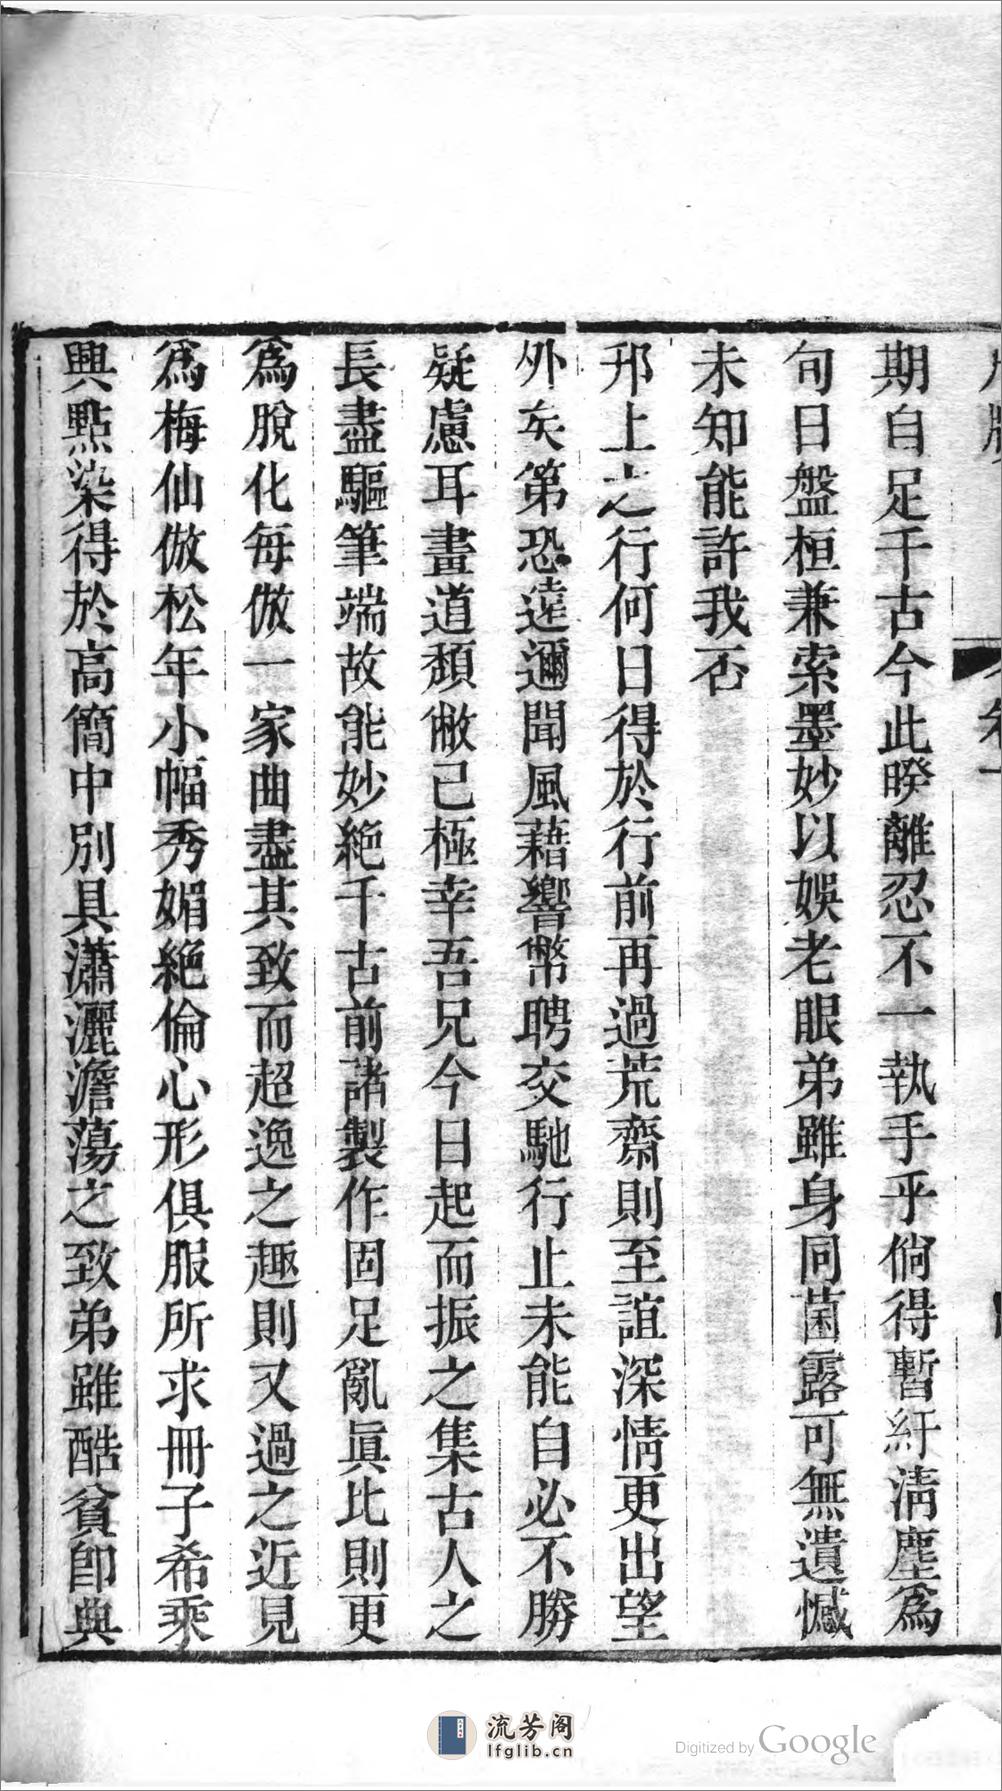 期自足千古今此暌離忍不一執手乎倘得暫紆清塵爲
旬日盤桓兼索墨妙以娛老眼弟雖身同菌露可無遺憾
未知能許我否
邗上之行何日得於行前再過荒齋則至誼深情更出望
外矣第恐遠邇聞風藉響幣聘交馳行止未能自必不勝
疑慮耳畫道頹敝已極幸吾兄今日起而振之集古人之
長盡驅筆端故能妙絶千古前諸製作固足亂眞比則更
爲脫化每倣一家曲盡其致而超逸之趣則又過之近見
爲梅仙倣松年小幅秀媚絶倫心形俱服所求冊子希乘
興點染得於高簡中別具瀟灑澹蕩之致弟雖酷貧卽典
流芳阁
lfglib.cn
Digitized by Google